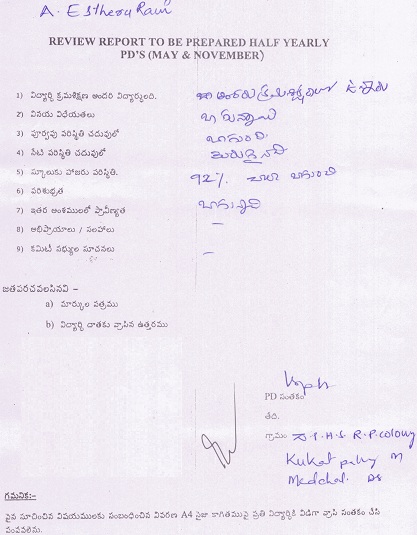 A. Estheru Rani
REVIEW REPORT TO BE PREPARED HALF YEARLY
PD'S (MAY & NOVEMBER)
1) విద్యార్థి క్రమశిక్షణ అందరి విద్యార్థులది. ఉన్నారు
2) వినయ విధేయతలు బాగున్నాయి
3) పూర్వపు పరిస్థితి చదువులో బాగుంది.
4) నేటి పరిస్థితి చదువులో మెరుగైనది
5) స్కూలుకు హాజరు పరిస్థితి. 92% చాలా బాగుంది
6) పరిశుభ్రత బాగున్నది
7) ఇతర అంశములలో ప్రావీణ్యత –
8) అభిప్రాయాలు / సలహాలు
9) కమిటీ సభ్యుల సూచనలు –
జతపరచవలసినవి –
a) మార్కుల పత్రము
b) విద్యార్థి దాతకు వ్రాసిన ఉత్తరము
PD సంతకం
తేది.
గ్రామం Z.P.H.S R.P.colony
Kukatpally M
Medchal. Ds
గమనిక:-
పైన సూచించిన విషయములకు సంబంధించిన వివరణ A4 సైజు కాగితముపై ప్రతి విద్యార్థికి విడిగా వ్రాసి సంతకం చేసి
పంపవలెను.